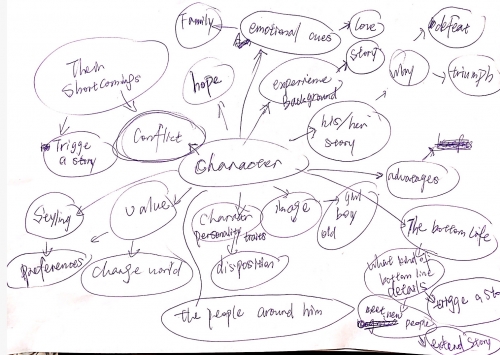 Family
emotional cues
love
story
defeat
why
triumph
Their
shortcomings
hope
experience
background
his/her
story
Conflict
Trigge
a story
character
advantages
Styling
value
personality traits
image
girl
boy
old
The bottom life
what kind of
bottom line
details
preferences
change world
disposition
the people around him
meet new
people
trigge a sto
extend story